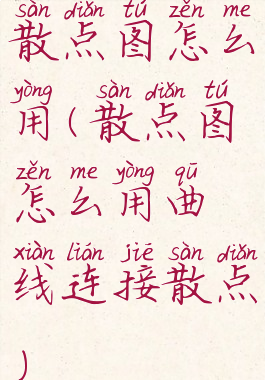 sàn diǎn tú zěn me
散点图怎么
yòng sàn diǎn tú
用(散点图
zěn me yòng qū
怎么用曲
xiàn lián jiē sàn diǎn
线连接散点
)